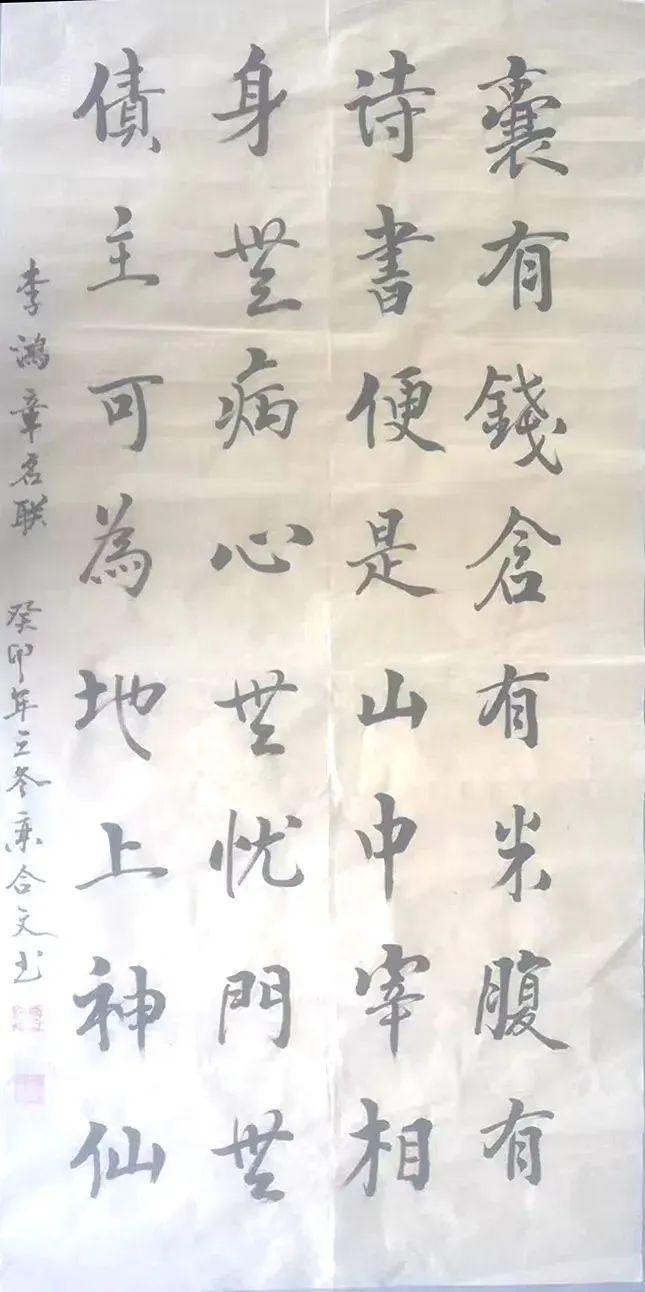 囊有錢倉有米腹有
诗書便是山中宰相
身無病心無忧門無
債主可為地上神仙
李鸿章名联 癸卯年立冬 合文书